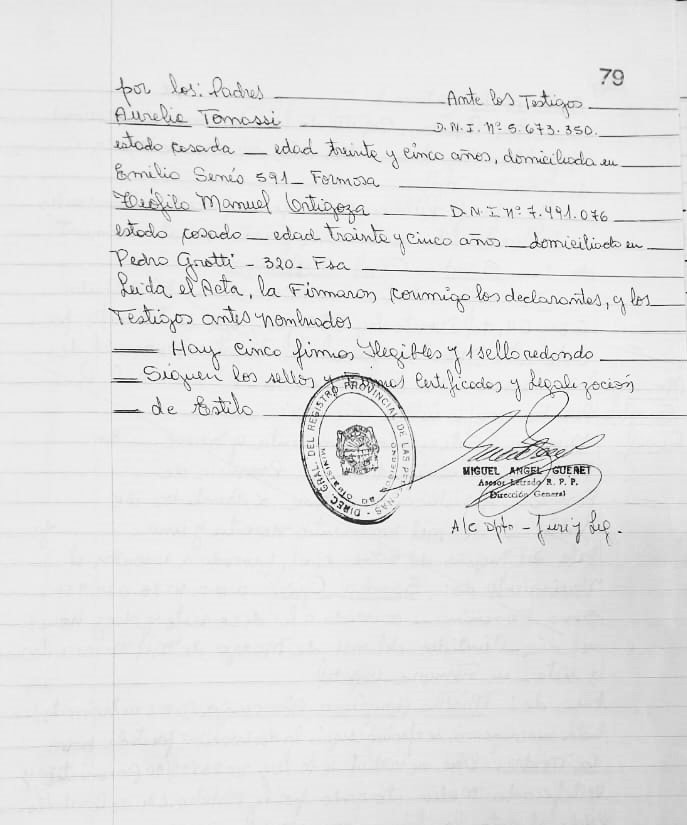 79
por los: Padres Ante los Testigos
Aurelia Tomassi D.N.I. Nº 5.673.350.
estado casada edad treinta y cinco años, domiciliada en
Emilio Senés 591 - Formosa
Teófilo Manuel Ortigoza D.N.I Nº 7.491.076
estado casado edad trainte y cinco años domiciliado en
Pedro Grotti - 320 - Fsa
Leida el Acta, la Firmaron conmigo los declarantes, y los
Testigos antes nombrados
Hay cinco firmas Ilegibles y 1 sello redondo
Siguen los sellos y Certificados y Legalización
de Estilo
DIREC. GRAL. DEL REGISTRO PROVINCIAL DE LAS PERSONAS
MIGUEL ANGEL GUERET
Asesor Letrado R. P. P.
Dirección General
A/C Dpto - Juri y Leg.